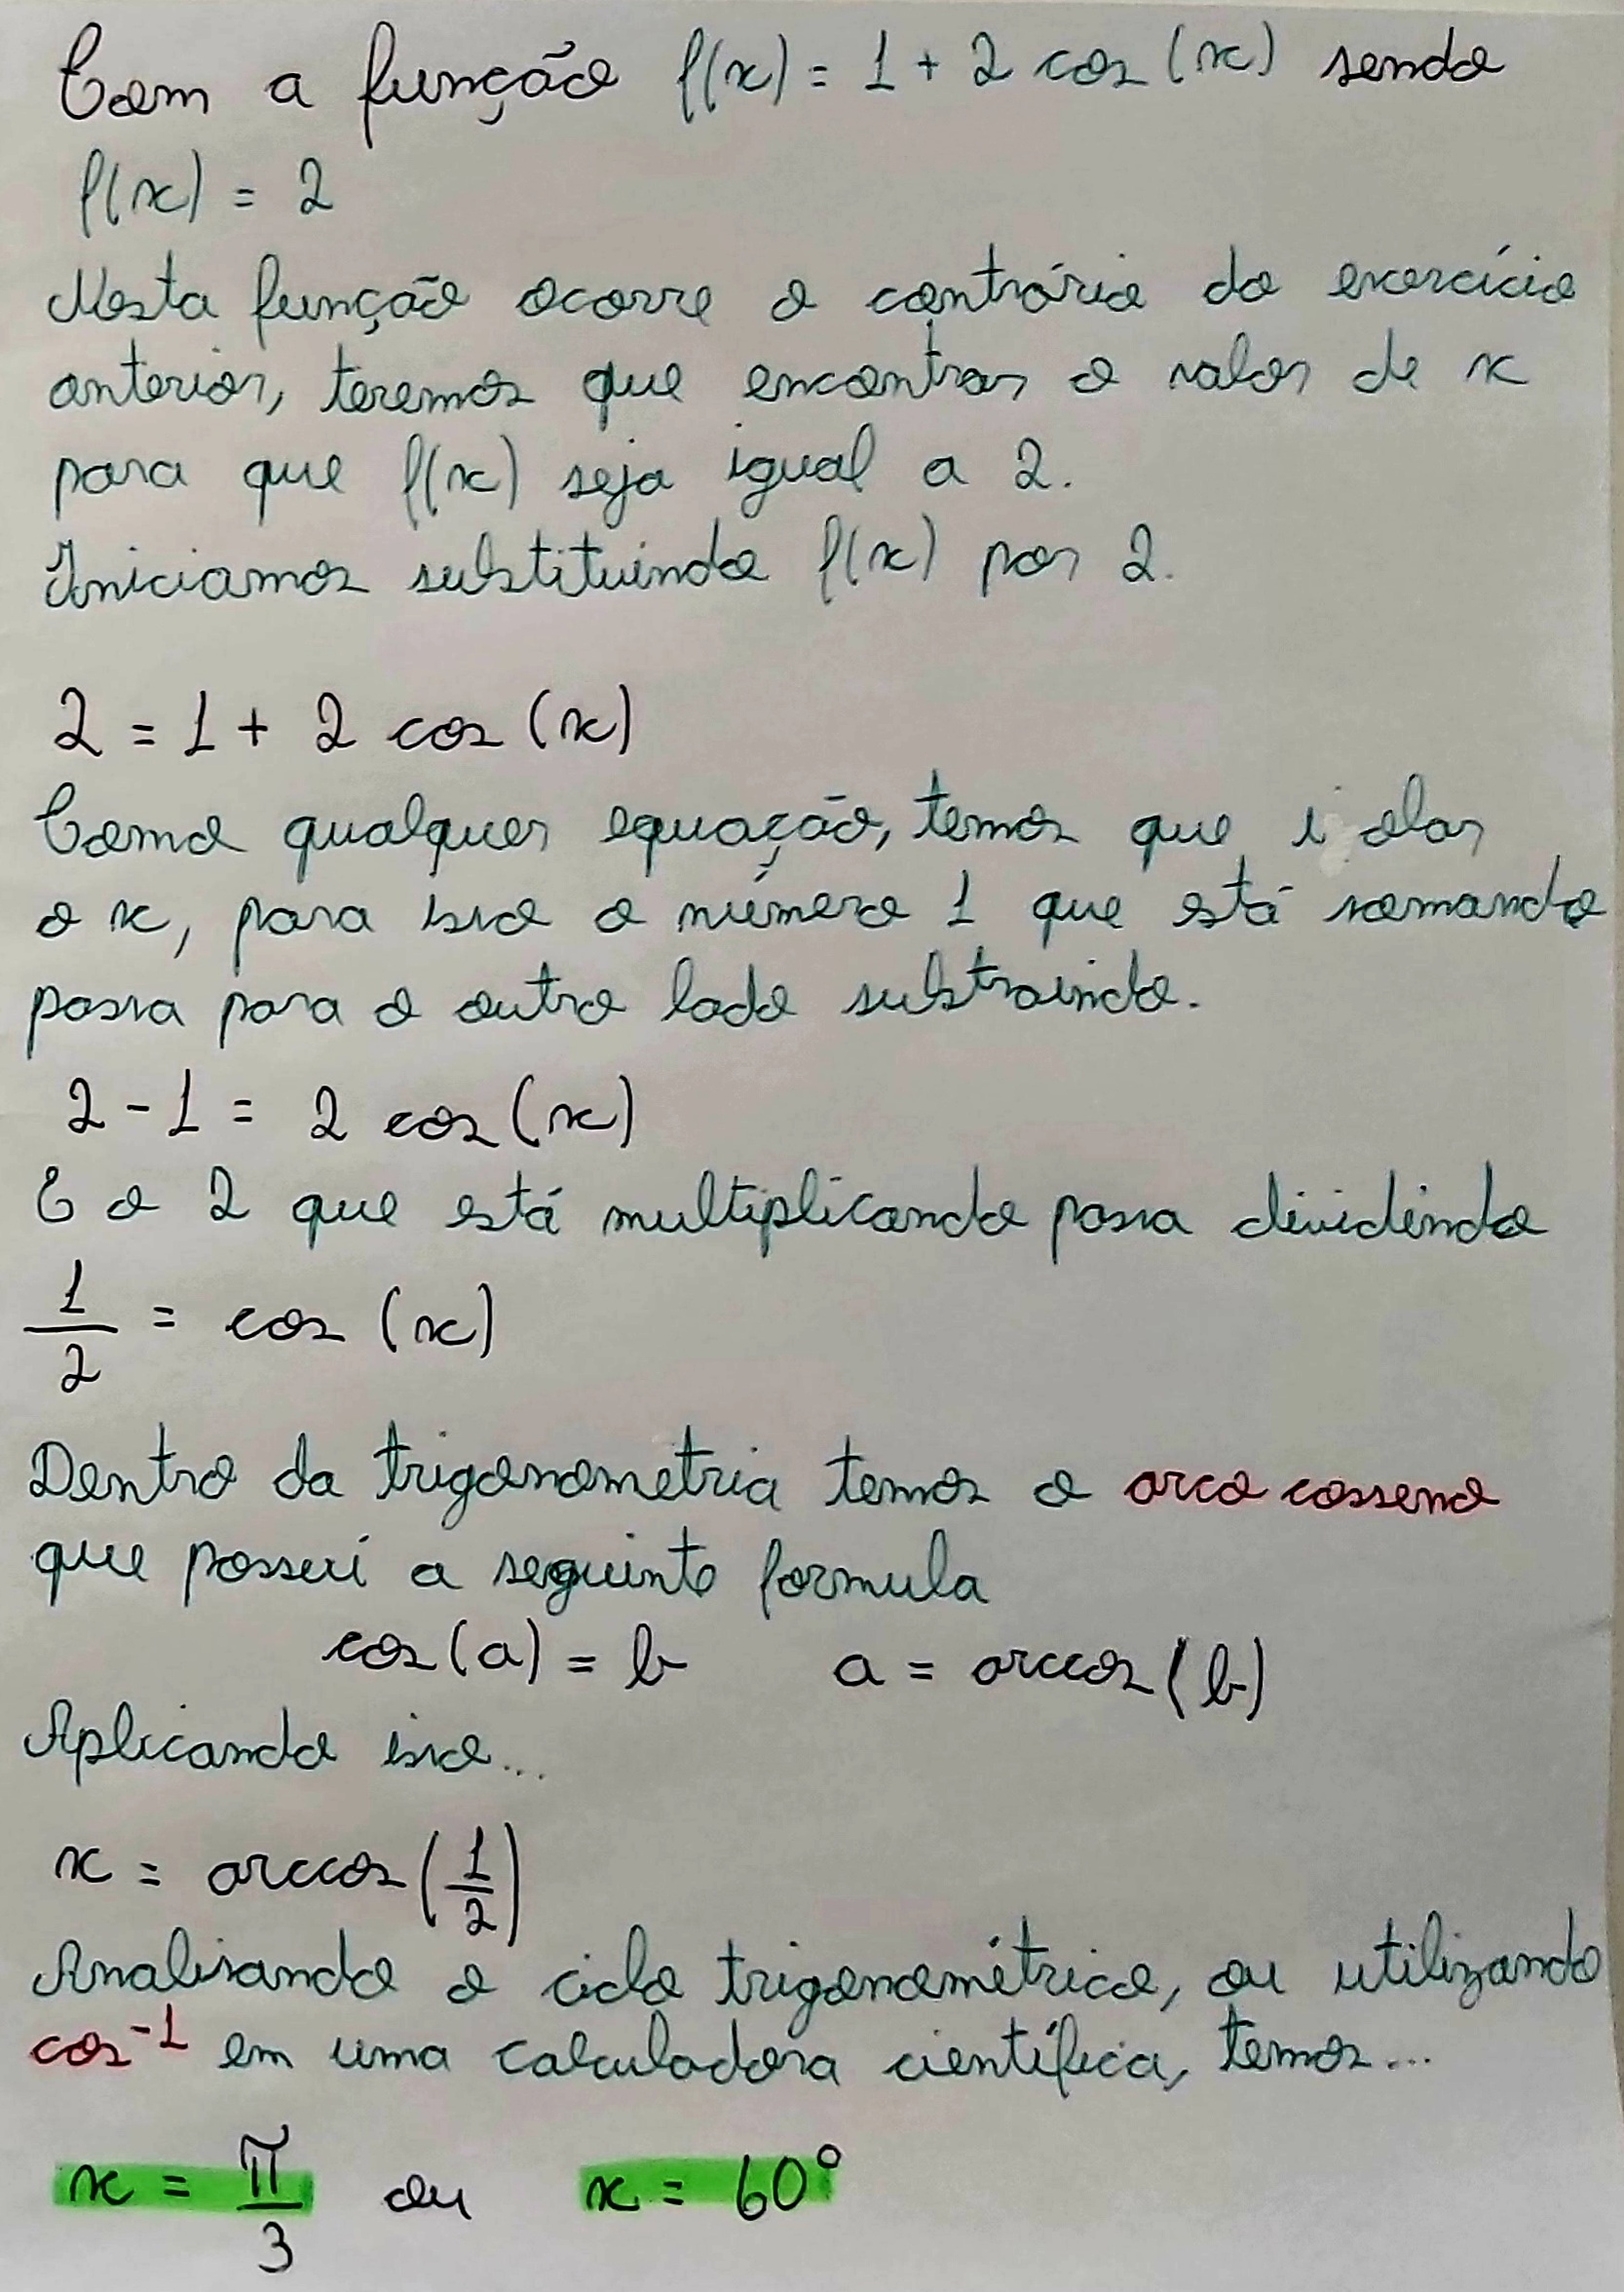 Com a função f(x) = 1 + 2 cos (x) sendo
f(x) = 2
Nesta função ocorre o contrário do exercício
anterior, teremos que encontrar o valor de x
para que f(x) seja igual a 2.
Iniciamos substituindo f(x) por 2.
2 = 1 + 2 cos (x)
Como qualquer equação, temos que i olar
o x, para isso o número 1 que está somando
passa para o outro lado subtraindo.
2 - 1 = 2 cos (x)
E o 2 que está multiplicando passa dividindo
1/2 = cos (x)
Dentro da trigonometria temos o arco cosseno
que possui a seguinte formula
cos(a) = b a = arccos(b)
Aplicando isso...
x = arccos (1/2)
Analisando o ciclo trigonométrico, ou utilizando
cos⁻¹ em uma calculadora científica, temos...
x = π/3 ou x = 60°